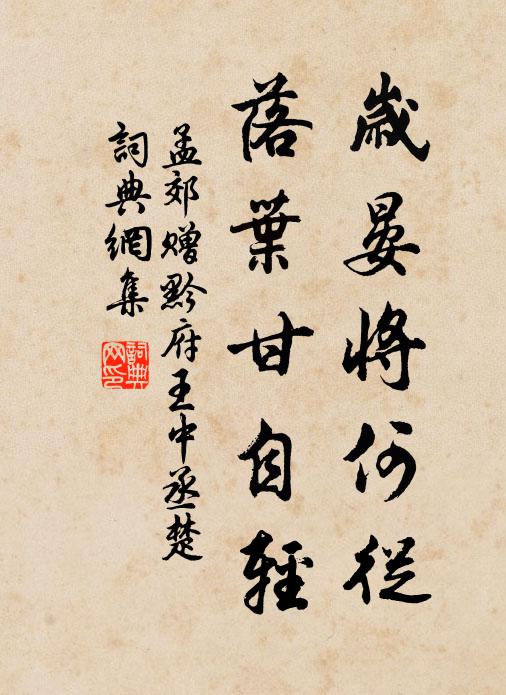 歲晏將何從
落葉甘自輕
孟郊贈黔府王中丞楚
詞典網集
詞典
网印